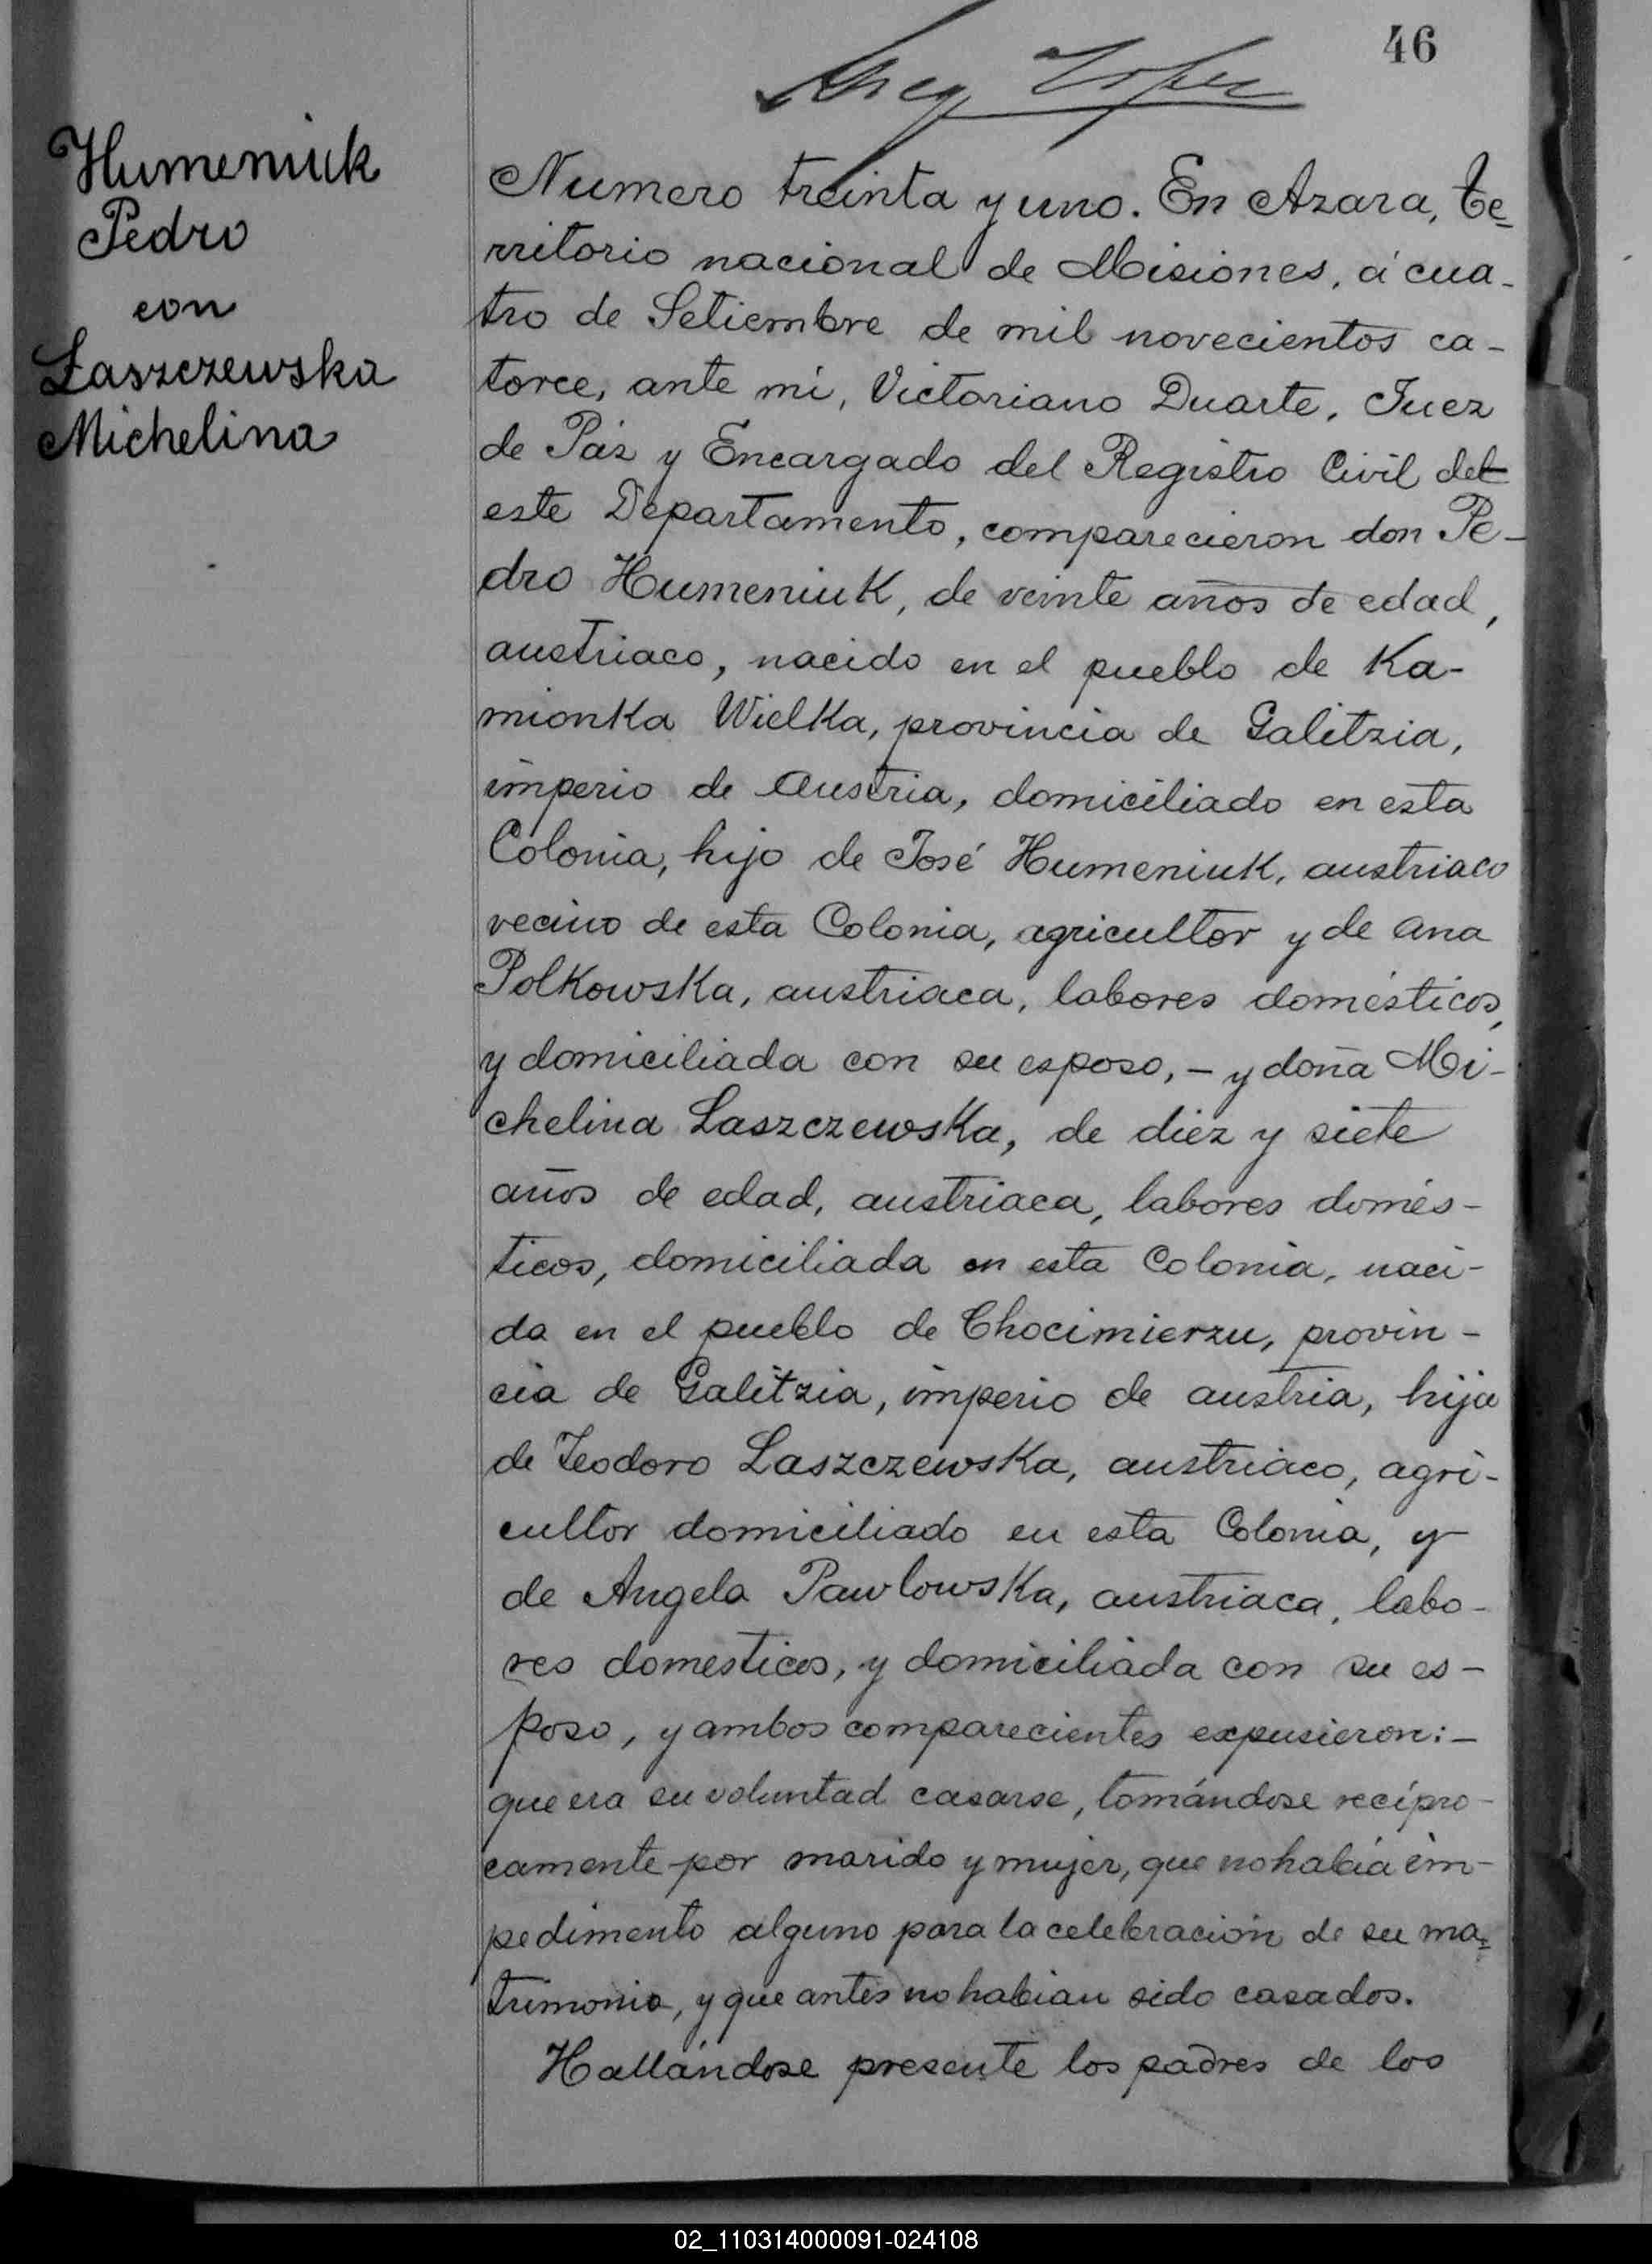 46
Humeniuk
Pedro
con
Łaszczewska
Michelina
Numero treinta y uno. En Azara, te-
rritorio nacional de Misiones, á cua-
tro de Setiembre de mil novecientos ca-
torce, ante mi, Victoriano Duarte, Juez
de Páz y Encargado del Registro Civil det
este Departamento, comparecieron don Pe-
dro Humeniuk, de veinte años de edad,
austriaco, nacido en el pueblo de Ka-
mionka Wielka, provincia de Galitzia,
imperio de Austria, domiciliado en esta
Colonia, hijo de José Humeniuk, austriaco
vecino de esta Colonia, agricultor y de Ana
Polkowska, austriaca, labores domésticos,
y domiciliada con su esposo, - y doña Mi-
chelina Laszczewska, de diez y siete
años de edad, austriaca, labores domés-
ticos, domiciliada en esta Colonia, naci-
da en el pueblo de Chocimierzu, provin-
cia de Galitzia, imperio de austria, hija
de Teodoro Laszczewska, austriaco, agri-
cultor domiciliado en esta Colonia, y
de Angela Pawlowska, austriaca, labo-
res domesticos, y domiciliada con su es-
poso, y ambos comparecientes expusieron: -
que era su voluntad casarse, tomándose recípro-
camente por marido y mujer, que no había im-
pedimento alguno para la celebración de su ma-
trimonio, y que antes no habian sido casados.
Hallándose presente los padres de los
02_110314000091-024108